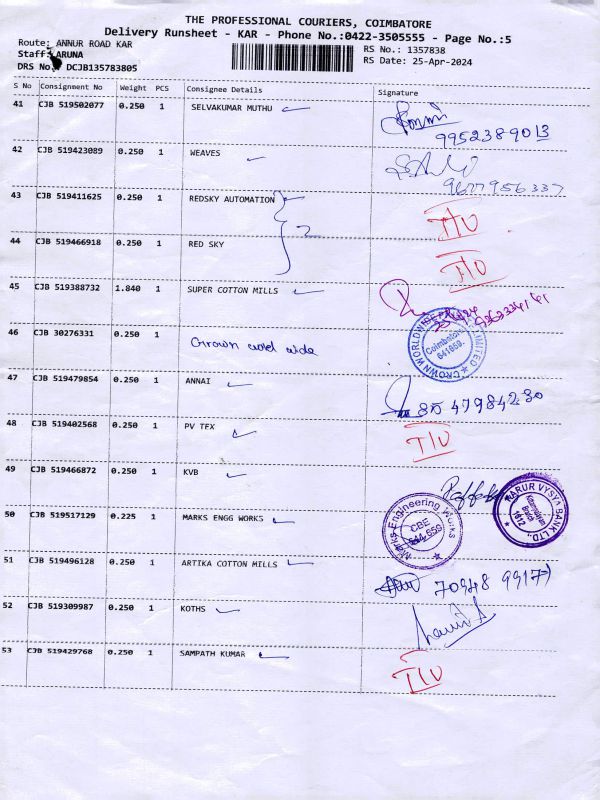 THE PROFESSIONAL COURIERS, COIMBATORE
Delivery Runsheet - KAR - Phone No.:0422-3505555 - Page No.:5
Route: ANNUR ROAD KAR RS No.: 1357838
Staff: ARUNA RS Date: 25-Apr-2024
DRS No. DCJB135783805
S No Consignment No Weight PCS Consignee Details Signature
41 CJB 519502077 0.250 1 SELVAKUMAR MUTHU
9952389013
42 CJB 519423089 0.250 1 WEAVES
9677956337
43 CJB 519411625 0.250 1 REDSKY AUTOMATION 2 I/U
44 CJB 519466918 0.250 1 RED SKY I/U
45 CJB 519388732 1.840 1 SUPER COTTON MILLS
46 CJB 30276331 0.250 1 Crown world wide
CROWN WORLDWIDE LIMITED Coimbatore 641659.
47 CJB 519479854 0.250 1 ANNAI
48 CJB 519402568 0.250 1 PV TEX I/U
49 CJB 519466872 0.250 1 KVB
KARUR VYSYA BANK LTD., Branch 1612
50 CJB 519517129 0.225 1 MARKS ENGG WORKS
Marks Engineering Works CBE 641 659
51 CJB 519496128 0.250 1 ARTIKA COTTON MILLS
70948 99177
52 CJB 519309987 0.250 1 KOTHS
53 CJB 519429768 0.250 1 SAMPATH KUMAR I/U